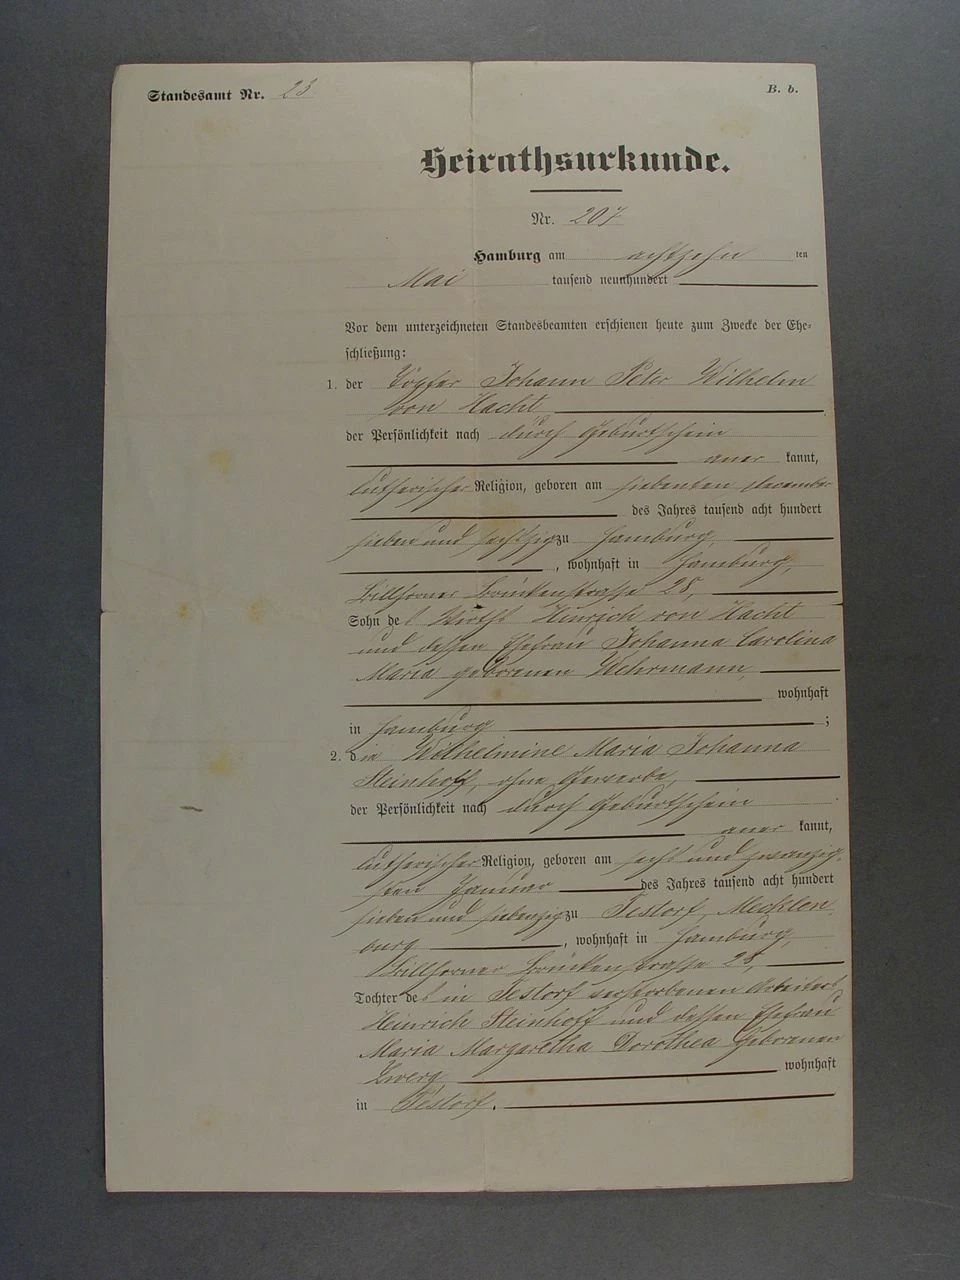 Standesamt Nr. 23
B. b.
Heirathsurkunde.
Nr. 207
Hamburg am achtzehn ten
Mai tausend neunhundert
Vor dem unterzeichneten Standesbeamten erschienen heute zum Zwecke der Ehe-
schließung:
1. der Töpfer Johann Peter Wilhelm
von Hacht
der Persönlichkeit nach durch Geburtschein
aner kannt,
lutherischer Religion, geboren am siebenten December
des Jahres tausend acht hundert
sieben und sechszig zu Hamburg
, wohnhaft in Hamburg,
Billhorner Brückenstrasse 28,
Sohn des Wirths Hinrich von Hacht
und dessen Ehefrau Johanna Carolina
Maria geborenen Wehrmann,
wohnhaft
in Hamburg ;
2. die Wilhelmine Maria Johanna
Steinhoff, ohne Gewerbe,
der Persönlichkeit nach durch Geburtschein
aner kannt,
lutherischer Religion, geboren am sechs und zwanzig-
sten Januar des Jahres tausend acht hundert
sieben und siebenzig zu Testorf, Mecklen-
burg , wohnhaft in Hamburg,
Billhorner Brückenstrasse 28,
Tochter des in Testorf verstorbenen Arbeiters
Heinrich Steinhoff und dessen Ehefrau
Maria Margaretha Dorothea geborenen
Zwerg wohnhaft
in Testorf.